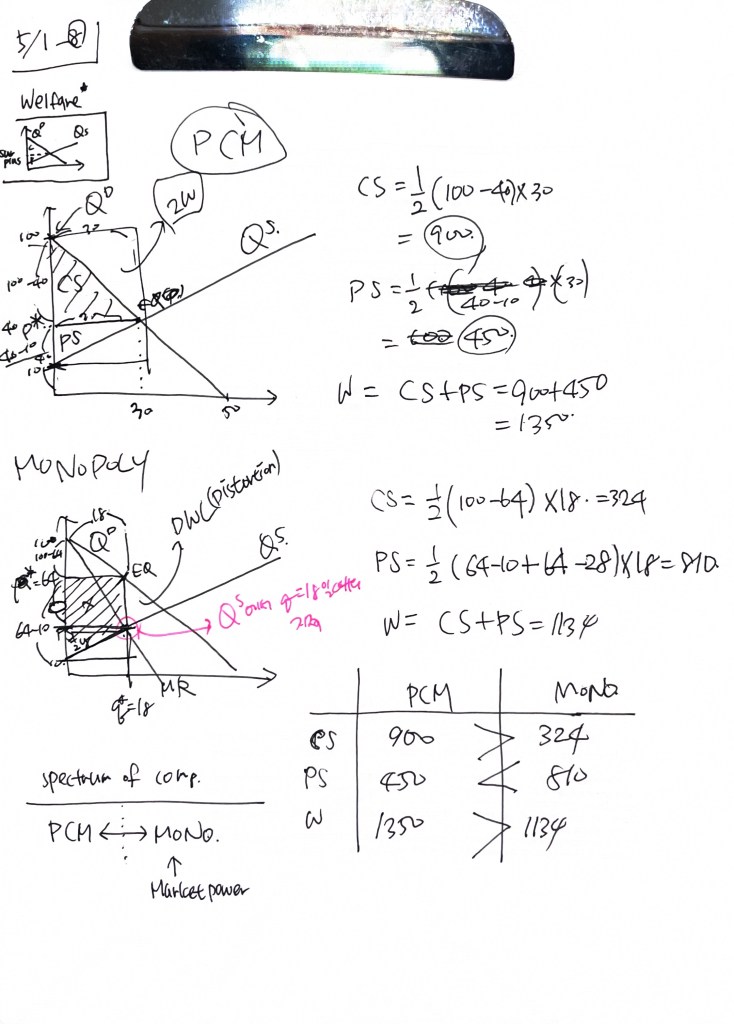 5/1-8
Welfare*
Qᴰ
Qs
PCM
2W
Qᴰ
Qˢ.
100
100-40
CS
40 P*
PS
40-10
10
30
50
CS = 1/2 (100-40)×30
= 900.
PS = 1/2 (40-10)×(30)
= 450
W = CS+PS = 900+450
= 1350.
MONOPOLY
DWL (Distortion)
18
Qᴰ
EQ
Qˢ.
100-64
=64
64-10
Qˢ
q=18
MR
q*=18
CS = 1/2 (100-64)×18. = 324
PS = 1/2 (64-10+64-28)×18 = 810.
W = CS+PS = 1134
PCM MONO.
CS 900 > 324
PS 450 < 810
W 1350 > 1134
spectrum of comp.
PCM ↔ MONO.
↑
Market power